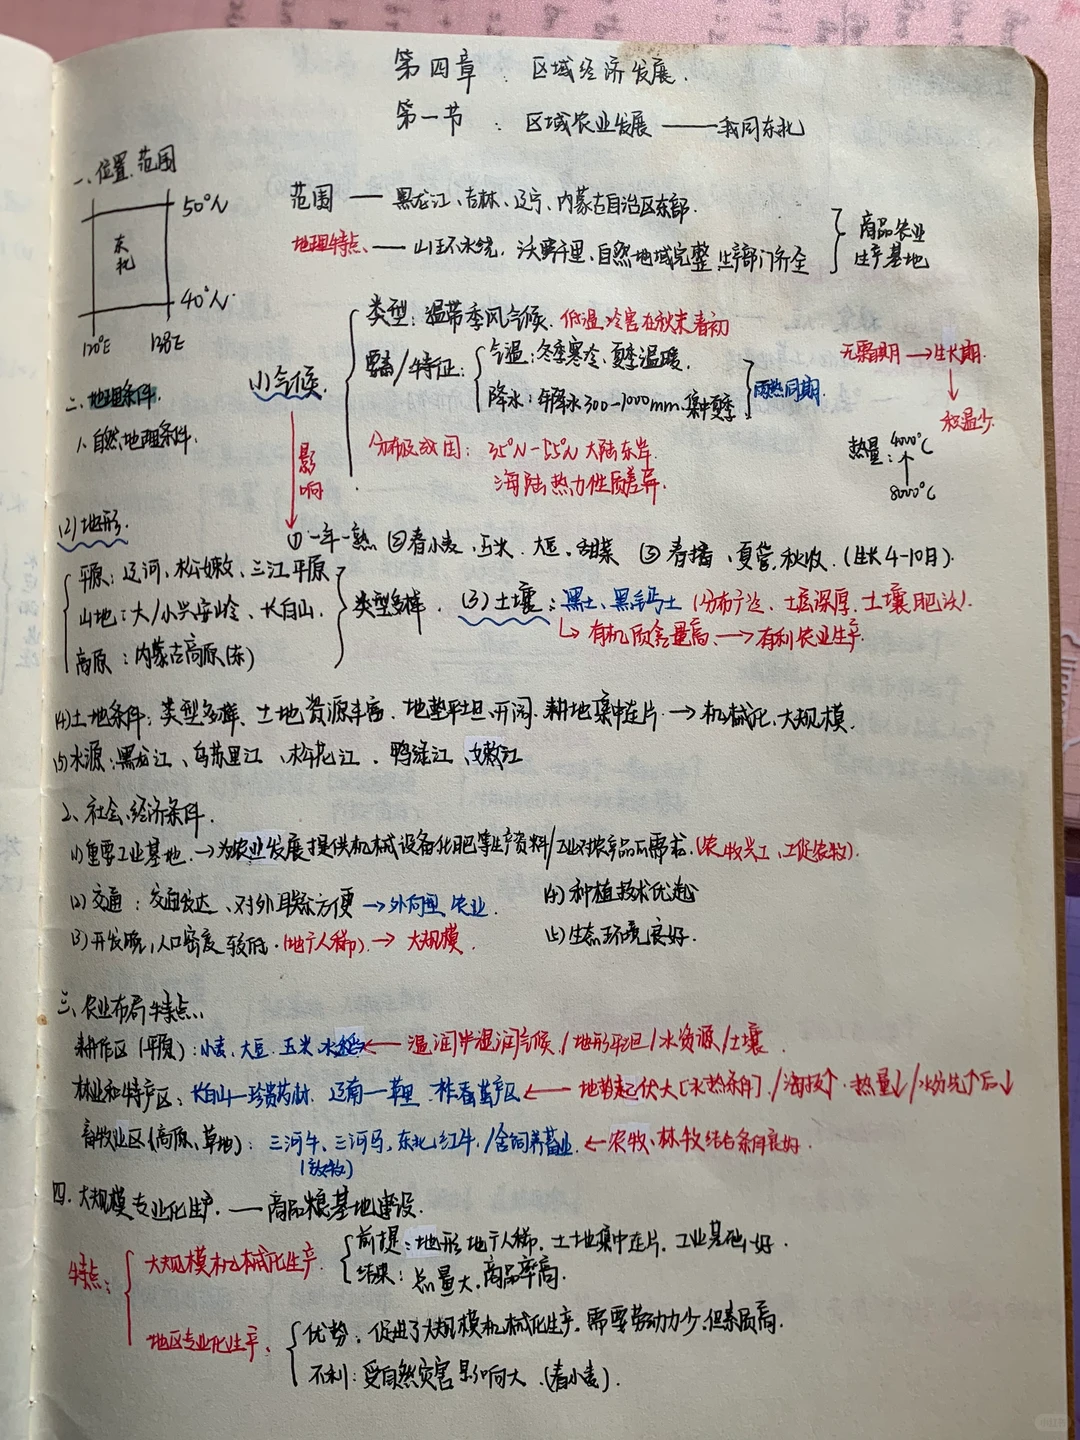 第四章：区域经济发展.
第一节：区域农业发展——我国东北
一、位置、范围
50°N
东北
40°N.
120°E 128°E
范围——黑龙江、吉林、辽宁、内蒙古自治区东部.
地理特点、——山环水绕, 沃野千里、自然地域完整 生产部门齐全
商品农业
生产基地
二、地理条件.
1、自然地理条件.
(1)气候.
类型：温带季风气候. 低温冷害在秋末春初
要素/特征：
气温：冬季寒冷、夏季温暖.
降水：年降水300-1000mm.集中夏季
雨热同期.
分布及成因：35°N-55°N 大陆东岸.
海陆热力性质差异.
无霜期→生长期.
↓
积温少.
热量：4000℃
↑
8000℃
影响
①一年一熟 ②春小麦、玉米、大豆、甜菜 ③春播、夏管,秋收.(生长4-10月).
(2)地形.
平原：辽河、松嫩、三江平原
山地：大/小兴安岭、长白山.
高原：内蒙古高原(东)
类型多样.
(3)土壤：黑土、黑钙土(分布广泛、土层深厚、土壤肥沃).
↳有机质含量高、→有利农业生产.
(4)土地条件：类型多样、土地资源丰富、地势平坦、开阔.耕地集中连片.→机械化、大规模.
(5)水源：黑龙江、乌苏里江、松花江、鸭绿江、嫩江
2、社会、经济条件.
(1)重要工业基地.→为农业发展提供机械设备化肥等生产资料/工业对农产品需求.(农牧兴工,工促农牧).
(2)交通：交通发达、对外联系方便→外向型农业.
(4)种植技术优越
(3)开发晚,人口密度较低.(地广人稀).→大规模.
(5)生态环境良好.
三、农业布局特点、
耕作区(平原)：小麦、大豆、玉米、水稻←温润半湿润气候./地形平坦/水资源/土壤.
林业和特产区：长白山—珍贵药材、辽南—苹果、柞蚕茧产区←地势起伏大[水热条件]./海拔↑.热量↓/水分先↑后↓
畜牧业区(高原、草地)：三河牛、三河马,东北红牛./舍饲养畜业.←农牧、林牧结合条件良好.
(放牧)
四.大规模专业化生产.——商品粮基地建设.
特点：
大规模机械化生产.
前提：地形 地广人稀.土地集中连片.工业基础好.
结果：总量大,商品率高.
地区专业化生产、
优势：促进了大规模机械化生产,需要劳动力少.但素质高.
不利：受自然灾害影响大.(春小麦).